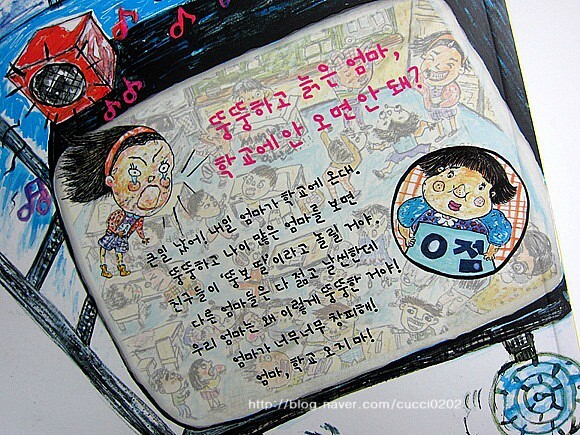 뚱뚱하고 늙은 엄마,
학교에 안 오면 안 돼?
큰일 났어! 내일 엄마가 학교에 온다.
뚱뚱하고 나이 많은 엄마를 보면
친구들이 '뚱보 딸'이라고 놀릴 거야.
다른 엄마들은 다 젊고 날씬한데
우리 엄마는 왜 이렇게 뚱뚱한 거야!
엄마가 너무너무 창피해!
엄마, 학교 오지 마!
0점
http://blog.naver.com/cucci0202